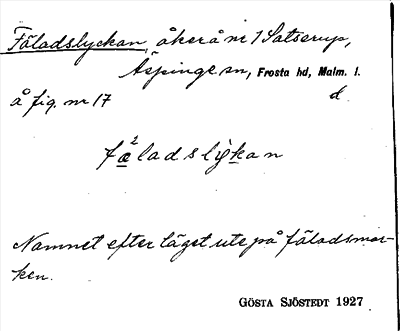 Fäladslyckan, åker å nr 1 Satserup,
Äspinge sn, Frosta hd, Malm. l.
å fig. nr 17 d.
fæ²ladslykan
Namnet efter läget ute på fäladsmar-
ken.
GÖSTA SJÖSTEDT 1927